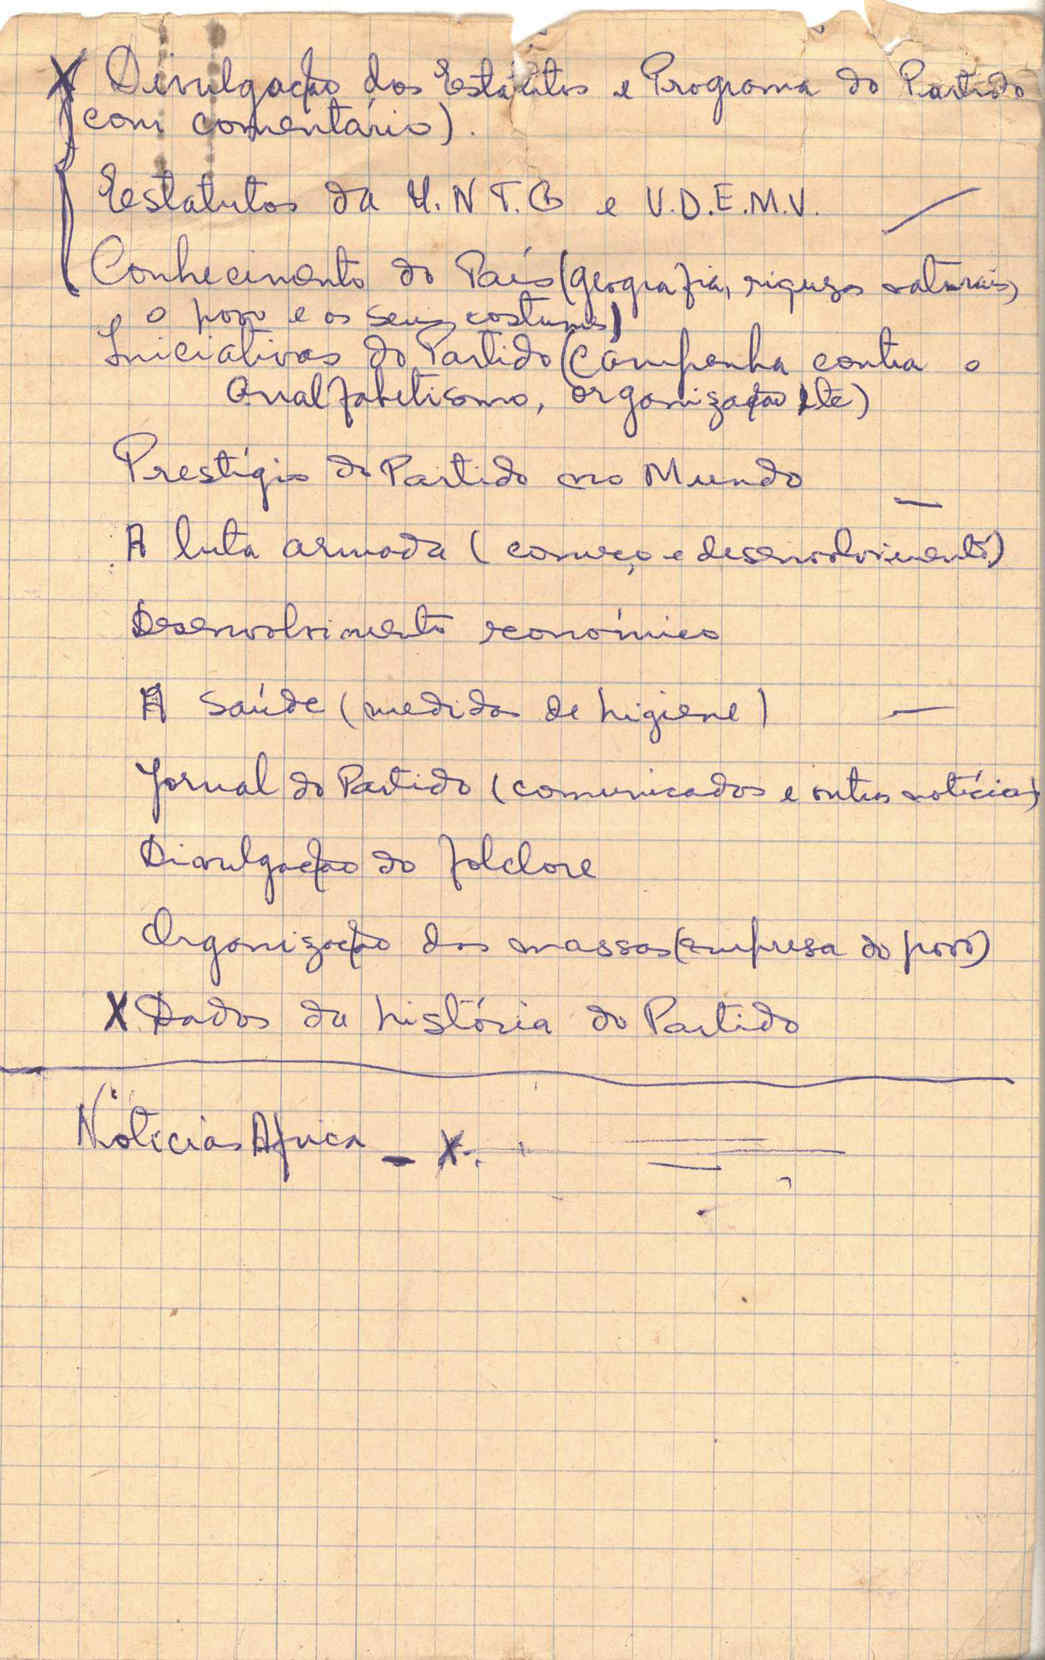 X Divulgação dos Estatutos e Programa do Partido
(com comentário).
Estatutos da U.N.T.G e U.D.E.M.V.
Conhecimento do País (geografia, riquezas naturais,
o povo e os seus costumes)
Iniciativas do Partido (Campanha contra o
analfabetismo, organização etc)
Prestígio do Partido no Mundo
A luta armada (começo e desenvolvimento)
Desenvolvimento económico
A Saúde (medidas de higiene)
Jornal do Partido (comunicados e outras notícias)
Divulgação do folclore
Organização das massas (empresa do povo)
X Dados da história do Partido
Noticias Africa - X.